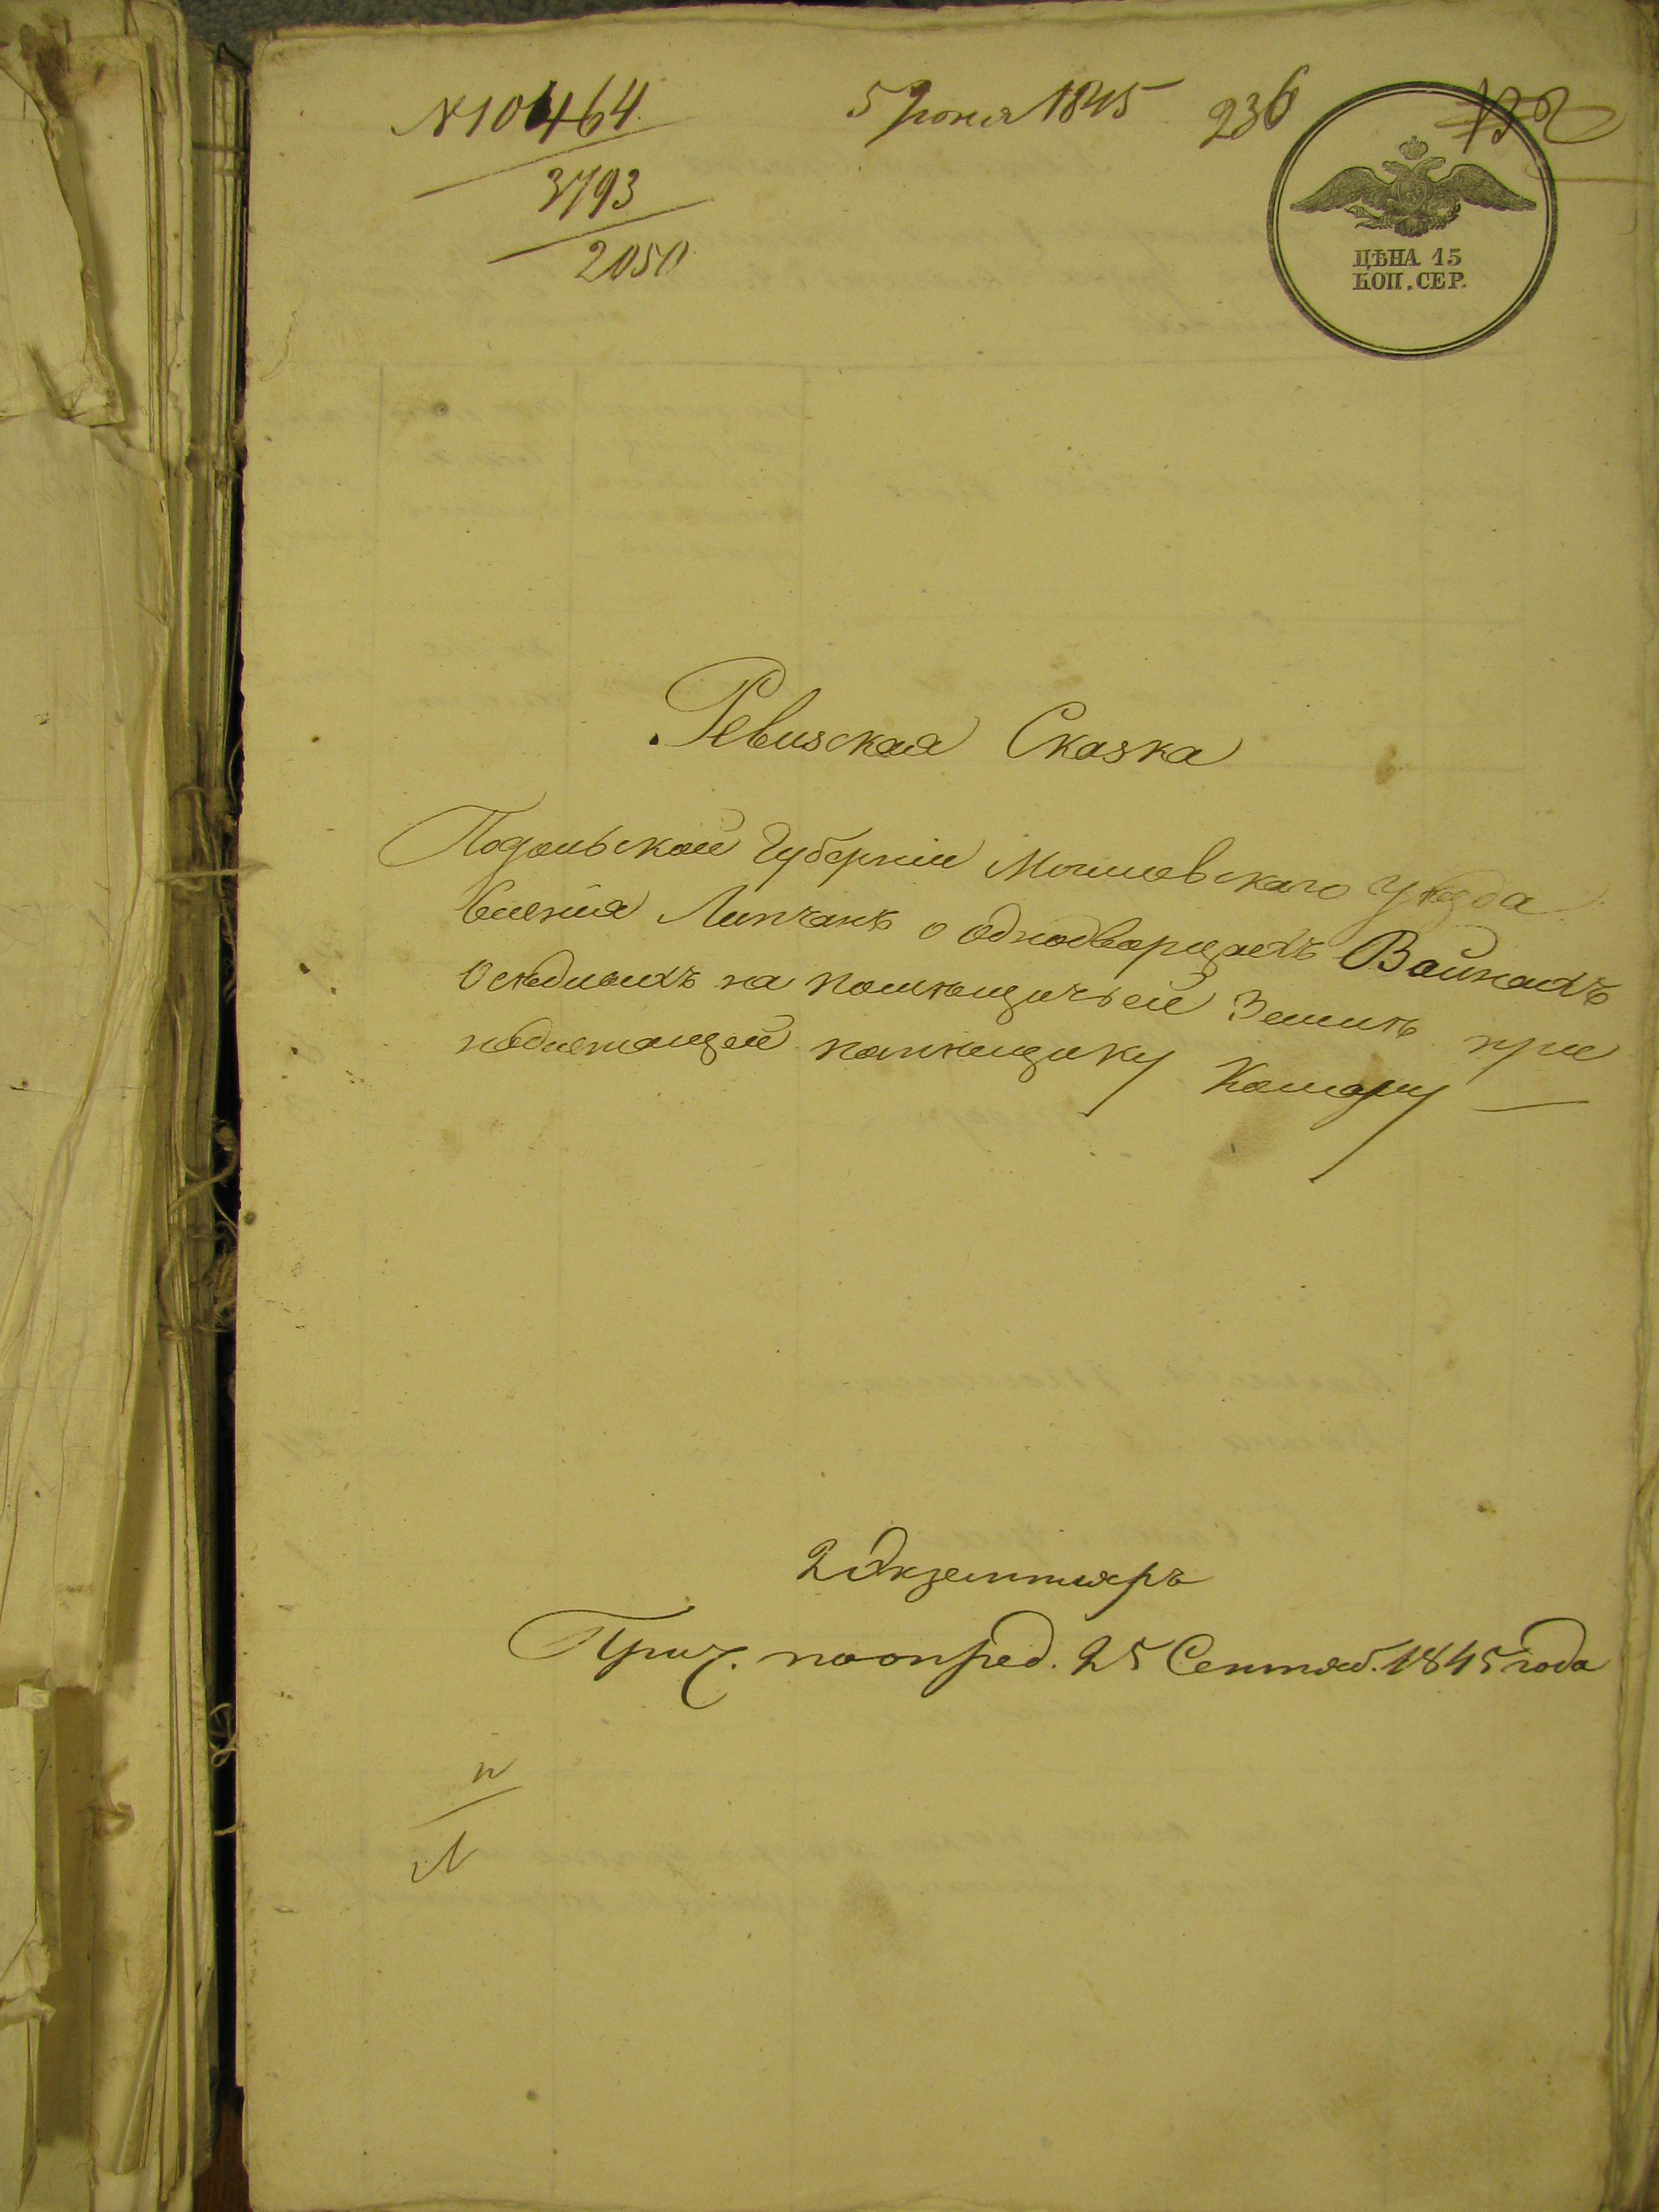 № 10464 5 Іюня 1845 236
3793
2050
ЦѢНА 15
КОП. СЕР.
Ревизская Сказка
Подольской Губерніи Могилевскаго Уѣзда
Селенія Липчанъ о однодворцахъ Войнахъ
Осѣдлыхъ на помѣщичьей Землѣ при
надлежащей помѣщику Комару
2 Экземпляръ
Прич. по опред. 25 Сентяб. 1845 года